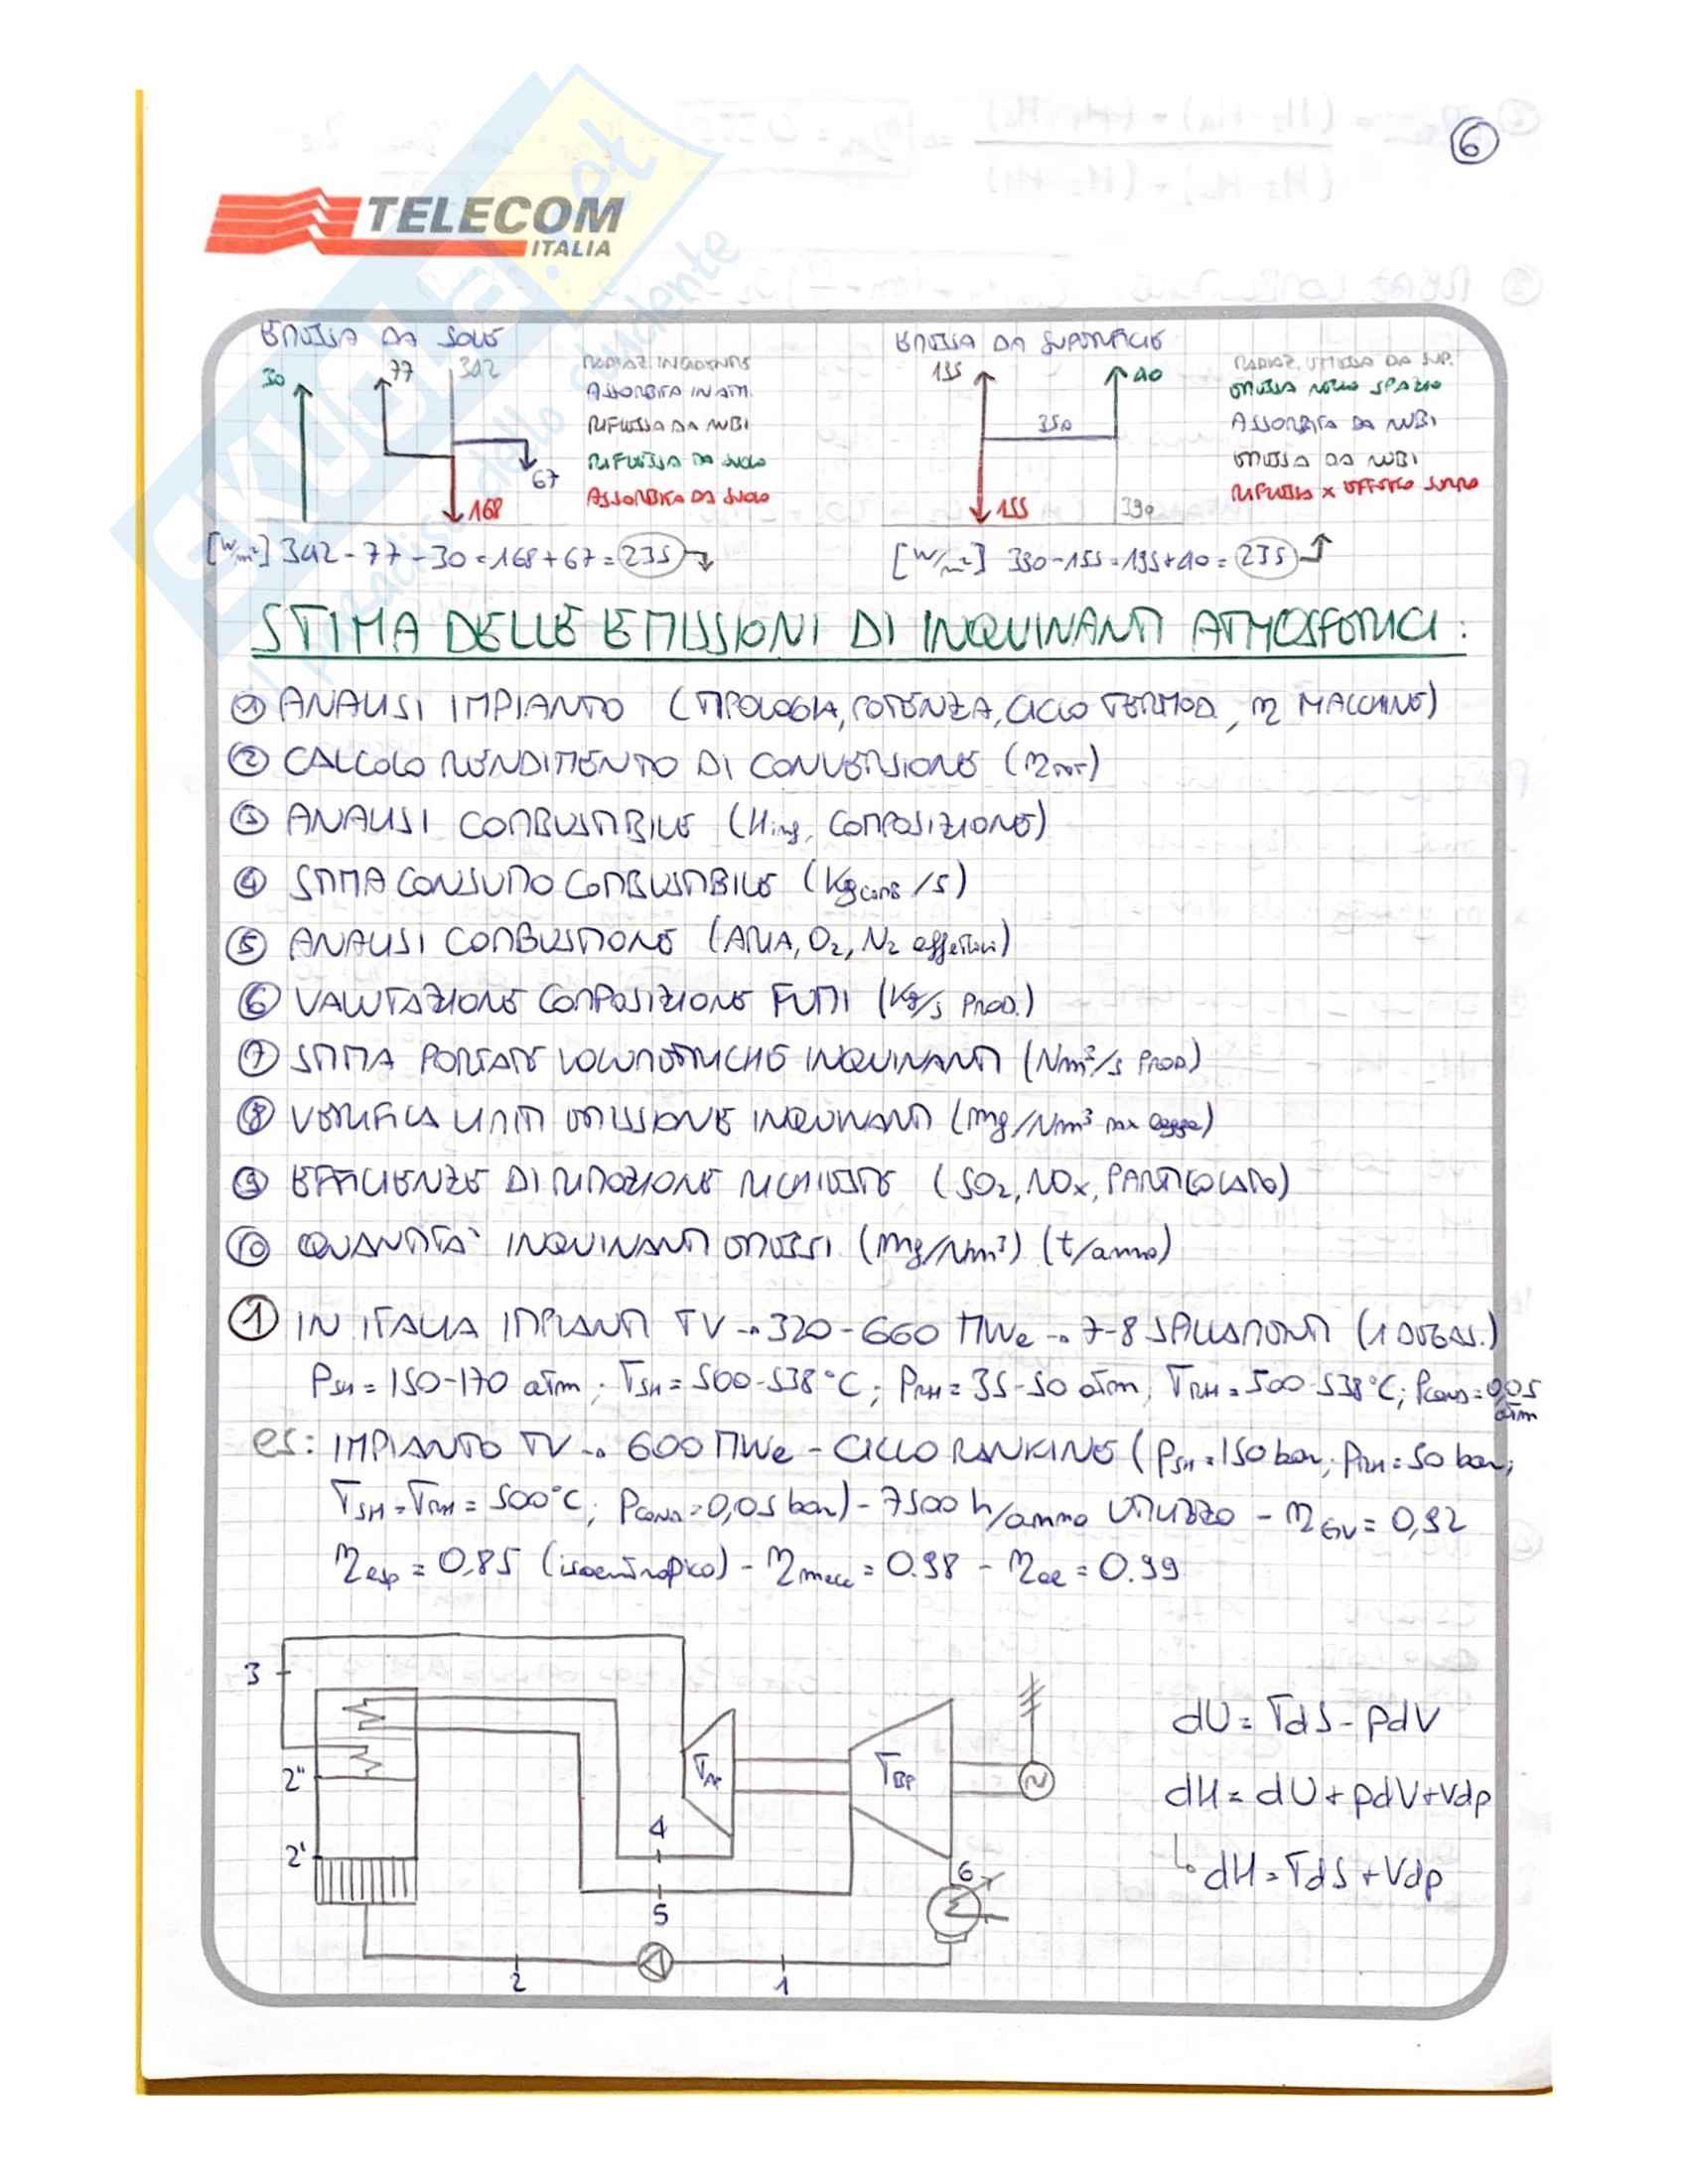 6
TELECOM
ITALIA
EMESSA DA SOLE
30 77 342
RADIAZ. INCIDENTE
ASSORBITA IN ATM.
RIFLESSA DA NUBI
RIFLESSA DA SUOLO
ASSORBITA DA SUOLO
67
168
[W/m²] 342 - 77 - 30 = 168 + 67 = 235
EMESSA DA SUPERFICIE
195 40
350
155 390
RADIAZ. EMESSA DA SUP.
EMESSA NELLO SPAZIO
ASSORBITA DA NUBI
EMESSA DA NUBI
RIFLESSA x EFFETTO SERRA
[W/m²] 390 - 155 = 195 + 40 = 235
STIMA DELLE EMISSIONI DI INQUINANTI ATMOSFERICI:
1 ANALISI IMPIANTO (TIPOLOGIA, POTENZA, CICLO TERMOD., η MACCHINE)
2 CALCOLO RENDIMENTO DI CONVERSIONE (ηTOT)
3 ANALISI COMBUSTIBILE (Hinf, COMPOSIZIONE)
4 STIMA CONSUMO COMBUSTIBILE (Kgcomb/s)
5 ANALISI COMBUSTIONE (ARIA, O₂, N₂ effettivi)
6 VALUTAZIONE COMPOSIZIONE FUMI (Kg/s PROD.)
7 STIMA PORTATE VOLUMETRICHE INQUINANTI (Nm³/s PROD)
8 VERIFICA LIMITI EMISSIONE INQUINANTI (mg/Nm³ max legge)
9 EFFICIENZE DI RIMOZIONE RICHIESTE (SO₂, NOx, PARTICOLATO)
10 QUANTITA' INQUINANTI EMESSI (mg/Nm³) (t/anno)
1 IN ITALIA IMPIANTI TV → 320-660 MWe → 7-8 SPILLAMENTI (1 DEGAS.)
PSH = 150-170 atm; TSH = 500-538°C; PRH = 35-50 atm; TRH = 500-538°C; Pcond = 0,05 atm
es: IMPIANTO TV → 600 MWe - CICLO RANKINE (PSH = 150 bar; PRH = 50 bar;
TSH = TRH = 500°C; Pcond = 0,05 bar) - 7500 h/anno UTILIZZO - ηGV = 0,92
ηesp = 0.85 (isoentropico) - ηmecc = 0.98 - ηel = 0.99
3
2"
2'
TAP
TBP
4
5
6
2
1
dU = TdS - pdV
dH = dU + pdV + Vdp
dH = TdS + Vdp